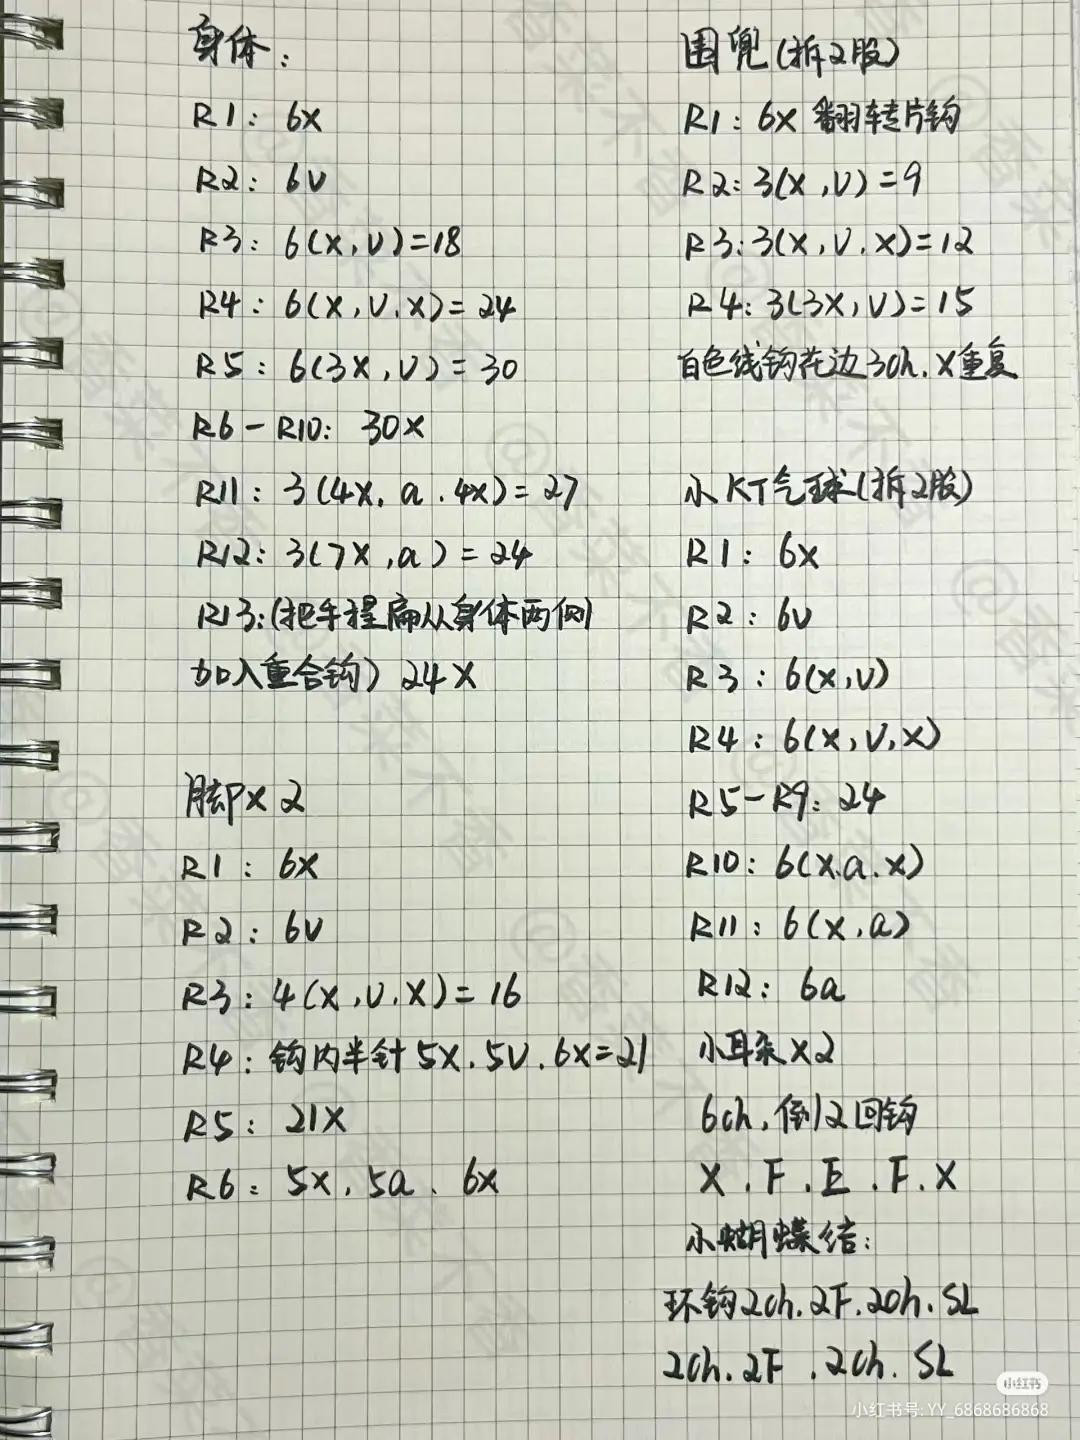 身体：
R1：6X
R2：6V
R3：6(X,V)=18
R4：6(X,V.X)=24
R5：6(3X,V)=30
R6-R10：30X
R11：3(4X,a.4X)=27
R12：3(7X,a)=24
R13:(把手捏扁从身体两侧
加入重合钩) 24X
脚X2
R1：6X
R2：6V
R3：4(X,V.X)=16
R4：钩内半针5X.5V.6X=21
R5：21X
R6：5X.5a.6X
围兜(拆2股)
R1：6X 翻转片钩
R2:3(X,V)=9
R3:3(X,V.X)=12
R4:3(3X,V)=15
白色线钩花边3ch.X重复
小KT气球(拆2股)
R1：6X
R2：6V
R3：6(X,V)
R4：6(X,V,X)
R5-R9：24
R10：6(X.a.X)
R11：6(X,a)
R12：6a
小耳朵X2
6ch,倒2回钩
X.F.E.F.X
小蝴蝶结：
环钩2ch.2F.2ch.SL
2ch.2F.2ch.SL
小红书
小红书号:YY_6868686868
@香菜不香